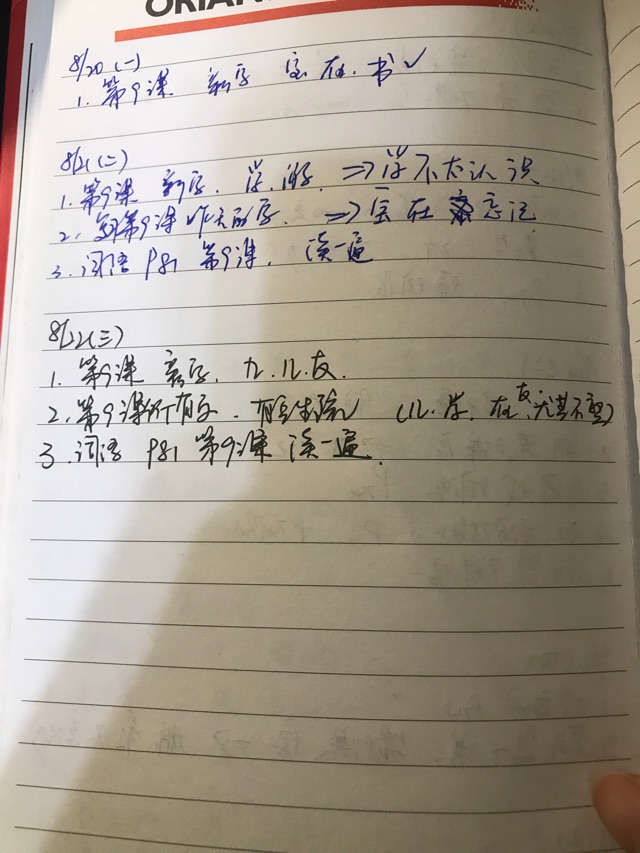 ORIAN
8/20 (一)
1. 第9课 新字 宝 在. 书 ✓
8/21 (二)
1. 第9课 新字. 学. ⇒ 学不太认识
2. 第9课昨天的字. ⇒ 宝 在 忘记
3. 词语 P81 第9课. 读一遍
8/22 (三)
1. 第9课 新字. 九. 儿. 友.
2. 第9课所有字. 有点生疏 (儿. 学. 在. 友. 尤其不熟)
3. 词语 P81 第9课 读一遍.